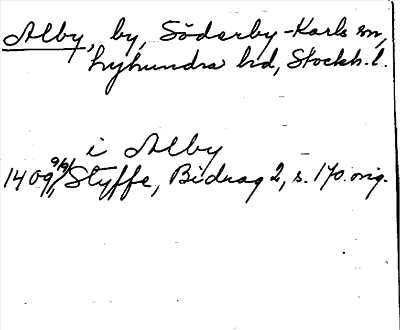 Alby, by, Söderby-Karls sn,
Lyhundra hd, Stockh. l.
i Alby
1409 9/9, Styffe, Bidrag 2, s. 170. orig.